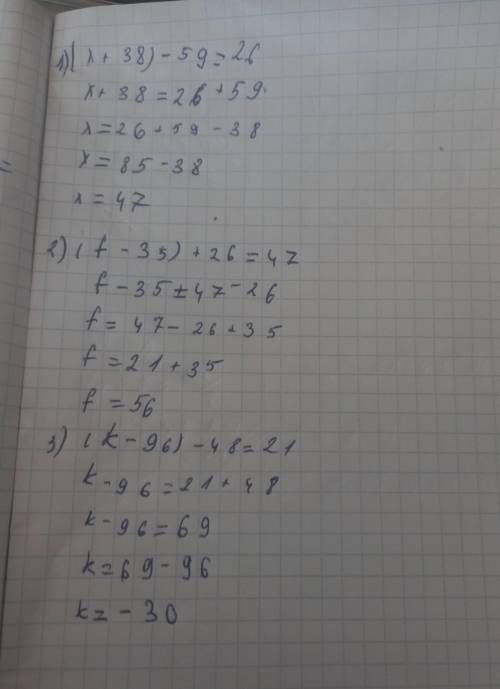 1) (x + 38) - 59 = 26
x + 38 = 26 + 59
x = 26 + 59 - 38
x = 85 - 38
x = 47
2) (f - 35) + 26 = 47
f - 35 = 47 - 26
f = 47 - 26 + 35
f = 21 + 35
f = 56
3) (k - 96) - 48 = 21
k - 96 = 21 + 48
k - 96 = 69
k = 69 - 96
k = - 30